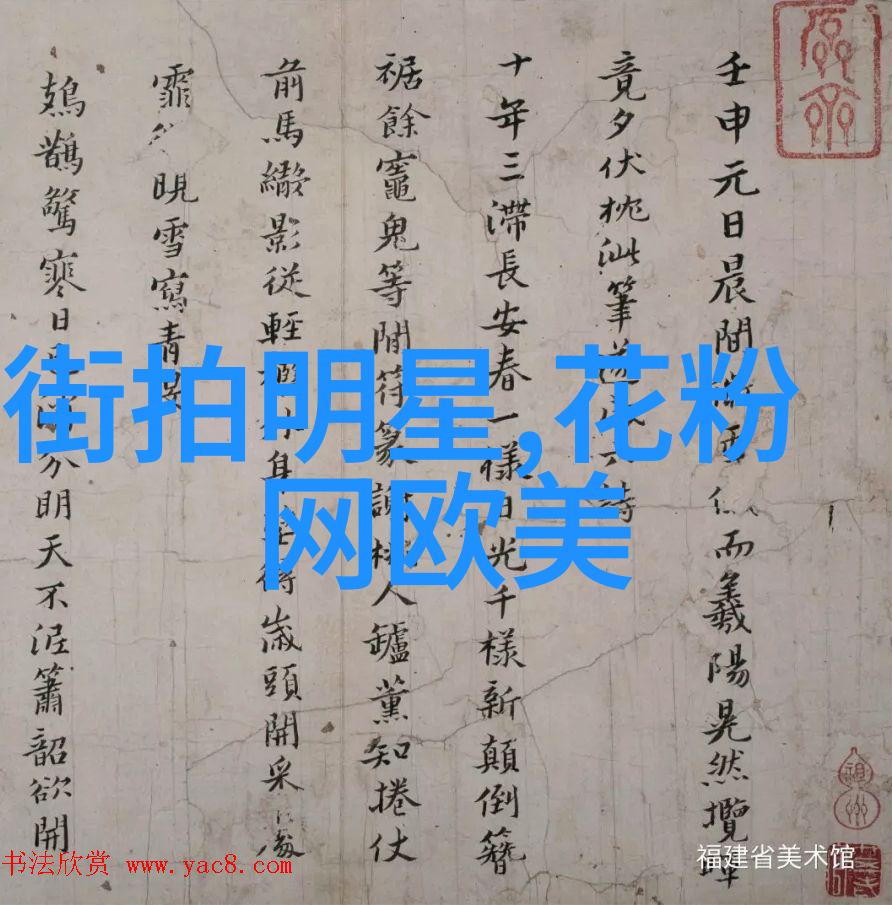 壬申元日晨間而羲陽晃然攬
竟夕伏枕泚筆詩
十年三滯長安春一樣日光千樣新顛倒簪
裾餘竈鬼等間符篆人鑪薰知捲仗
前馬影從輕身歲頭開采
霏晛雪寫青
鳷鵲驚寒日分明天不浥簫韶欲開
街拍明星,花粉
网欧美
书法欣赏 www.yac8.com
福建省美术馆